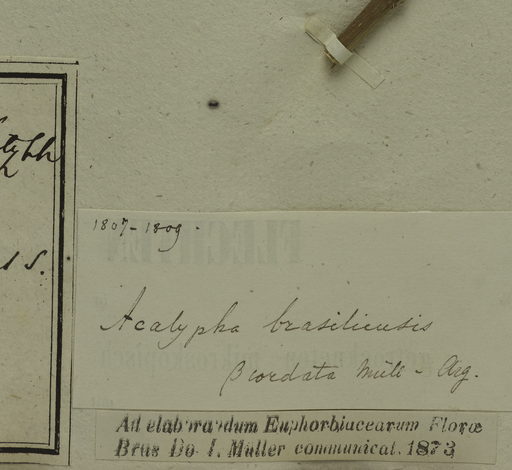 1807-1809.
Acalypha brasiliensis
β cordata Müll-Arg.
Ad elaborandum Euphorbiacearum Floræ
Bras Do. I. Müller communicat. 1873